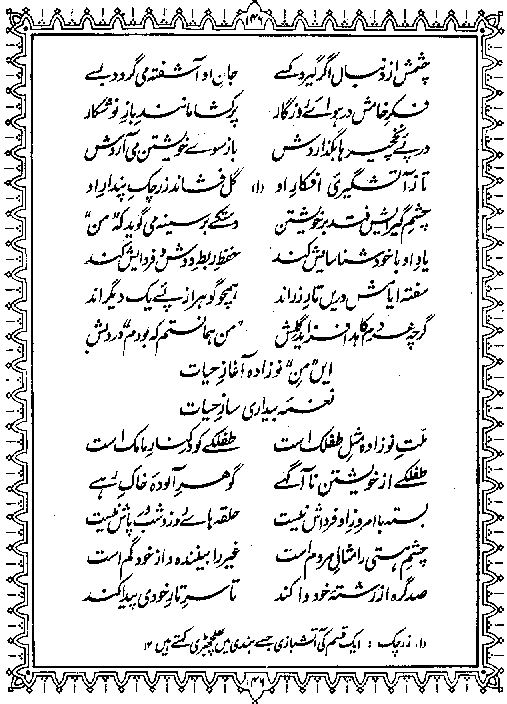 ۱۴۶
چشمش از دنبال اگر گیرد کسے جان او آشفتہ می گردد بسے
فکر خامش در ہوائے روزگار پر کشا مانند باز نو شکار
در پئے نخچیرہا بگذاردش باز سوے خویشتن می آردش
تا ز آتش گیری افکار او (۱) گل فشاند زرچک پندار او
چشم گیرایش فتد بر خویشتن دستکے بر سینہ می گوید کہ "من"
یاد او با خود شناسایش کند حفظ ربط دوش و فردایش کند
سفتہ ایامش دریں تار زر اند ہمچو گوہر از پئے یک دیگر اند
گرچہ ہر دم کاہد افزاید گلش "من ہمانستم کہ بودم" در دلش
ایں "من" نو زادہ آغاز حیات
نغمہ بیداری ساز حیات
ملت نو زادہ مثل طفلک است طفلکے کو در کنار مامک است
طفلکے از خویشتن نا آگہے گوہر آلودہ خاک رہے
بستہ با امروز او فرداش نیست حلقہ ہاے روز و شب در پاش نیست
چشم ہستی را مثال مردم است غیر را بینندہ و از خود گم است
صد گرہ از رشتہ خود وا کند تا سر تار خودی پیدا کند
(۱) زرچک : ایک قسم کی آتشبازی جسے ہندی میں پھلجھڑی کہتے ہیں ۱۲
۱۴۶